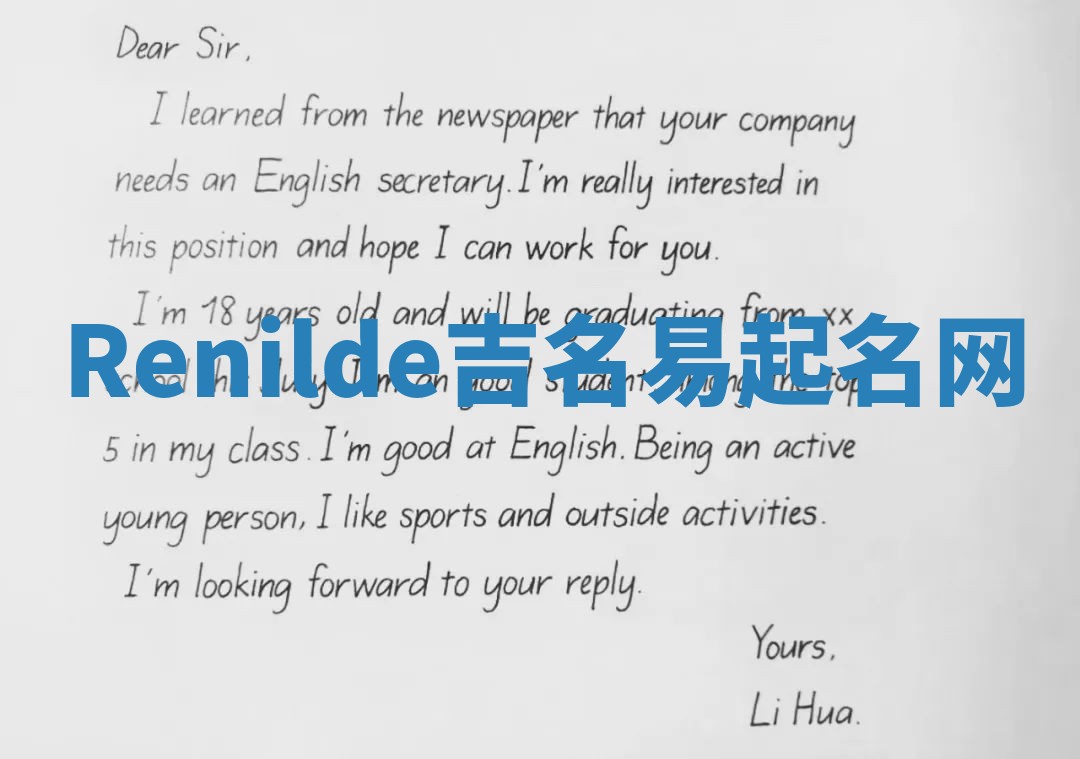 Dear Sir,
I learned from the newspaper that your company
needs an English secretary. I'm really interested in
this position and hope I can work for you.
I'm 18 years old and will be graduating from xx
Renilde吉名易起名网
school this July. I'm an good student among the top
5 in my class. I'm good at English. Being an active
young person, I like sports and outside activities.
I'm looking forward to your reply.
Yours,
Li Hua.